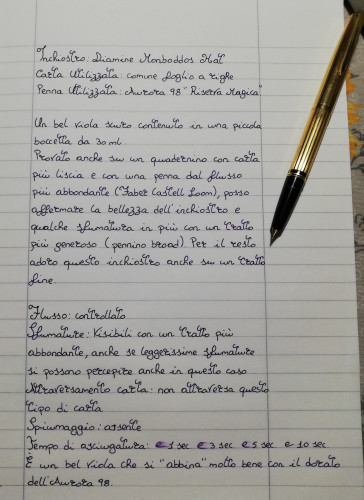 Inchiostro: Diamine Monboddos Hat
Carta Utilizzata: comune foglio a righe
Penna Utilizzata: Aurora 98 "Riserva Magica"
Un bel viola scuro contenuto in una piccola
boccetta da 30 ml.
Provato anche su un quadernino con carta
più liscia e con una penna dal flusso
più abbondante (Faber Castell Loom), posso
affermare la bellezza dell'inchiostro e
qualche sfumatura in più con un tratto
più generoso (pennino broad). Per il resto
adoro questo inchiostro anche su un tratto
fine.
Flusso: controllato
Sfumature: Visibili con un tratto più
abbondante, anche se leggerissime sfumature
si possono percepire anche in questo caso
Attraversamento carta: non attraversa questo
tipo di carta
Spiumaggio: assente
Tempo di asciugatura: 1 sec 3 sec 5 sec e 10 sec
È un bel viola che si "abbina" molto bene con il dorato
dell'Aurora 98.